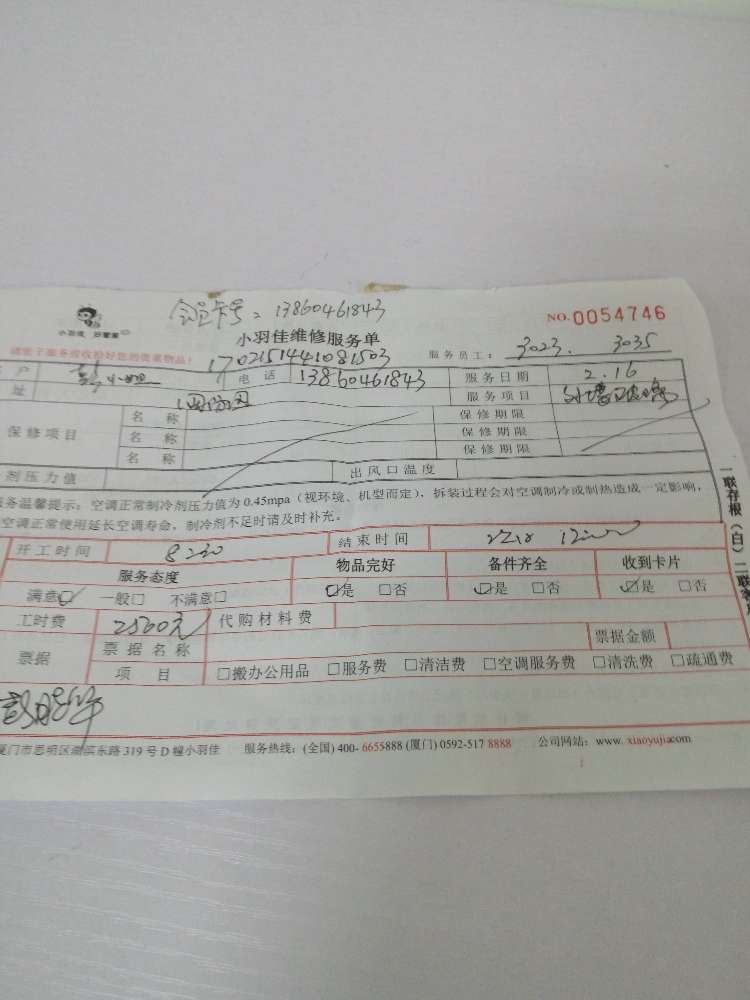 会员卡号：13860461843
小羽佳 好管家
小羽佳维修服务单
NO.0054746
请您于服务前收拾好您的贵重物品！
17021514441081503
服务员工： 3023. 3035
户 彭小姐 电话 13860461843 服务日期 2.16
址 服务项目
保修项目 名称 保修期限
名称 保修期限
名称 保修期限
剂压力值 出风口温度
服务温馨提示：空调正常制冷剂压力值为 0.45mpa（视环境、机型而定），拆装过程会对空调制冷或制热造成一定影响，
空调正常使用延长空调寿命，制冷剂不足时请及时补充。
一联存根（白）二联客
开工时间 8:30 结束时间
服务态度 物品完好 备件齐全 收到卡片
满意☑ 一般□ 不满意□ ☑是 □否 ☑是 □否 ☑是 □否
工时费 2500元 代购材料费
票据 票据名称 票据金额
项目 □搬办公用品 □服务费 □清洁费 □空调服务费 □清洗费 □疏通费
厦门市思明区湖滨东路 319 号 D 幢小羽佳 服务热线：(全国) 400- 6655888 (厦门) 0592-517 8888 公司网站：www. xiaoyujia.com